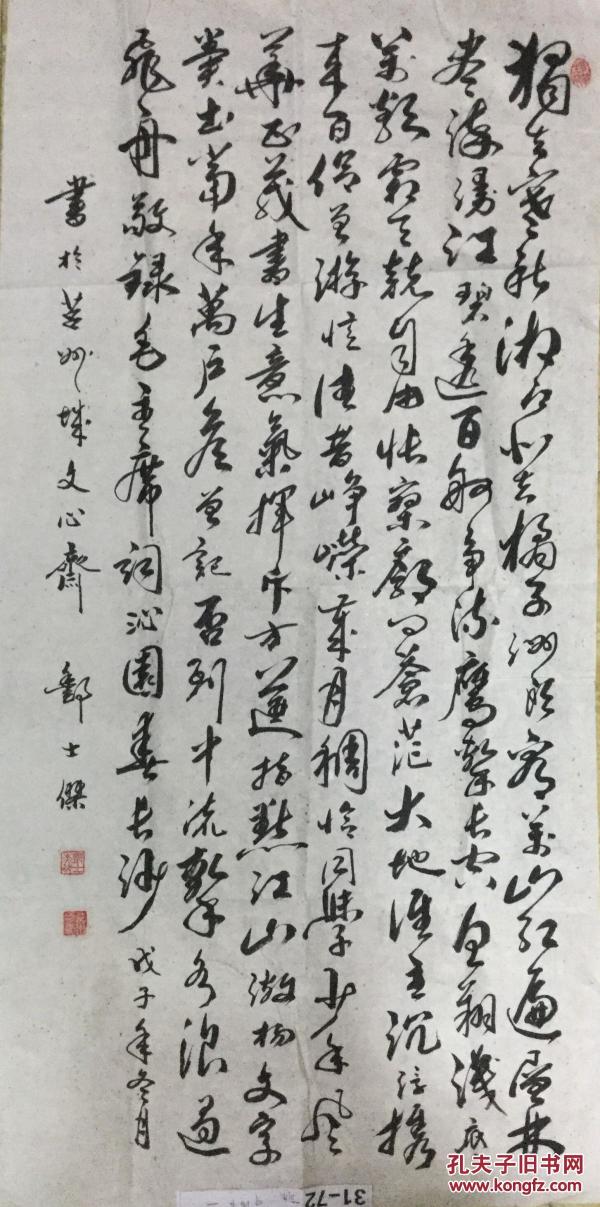 獨立寒秋湘江北去橘子洲頭看萬山紅遍層林
盡染漫江碧透百舸爭流鷹擊長空魚翔淺底
萬類霜天競自由悵寥廓問蒼茫大地誰主沉浮攜
來百侶曾遊憶往昔崢嶸歲月稠恰同學少年風
華正茂書生意氣揮斥方遒指點江山激揚文字
糞土當年萬戶侯曾記否到中流擊水浪遏
飛舟敬錄毛主席詞沁園春長沙戊子年冬月
書於莒州城文心齋 鄒士傑
31-72
孔夫子旧书网
www.kongfz.com